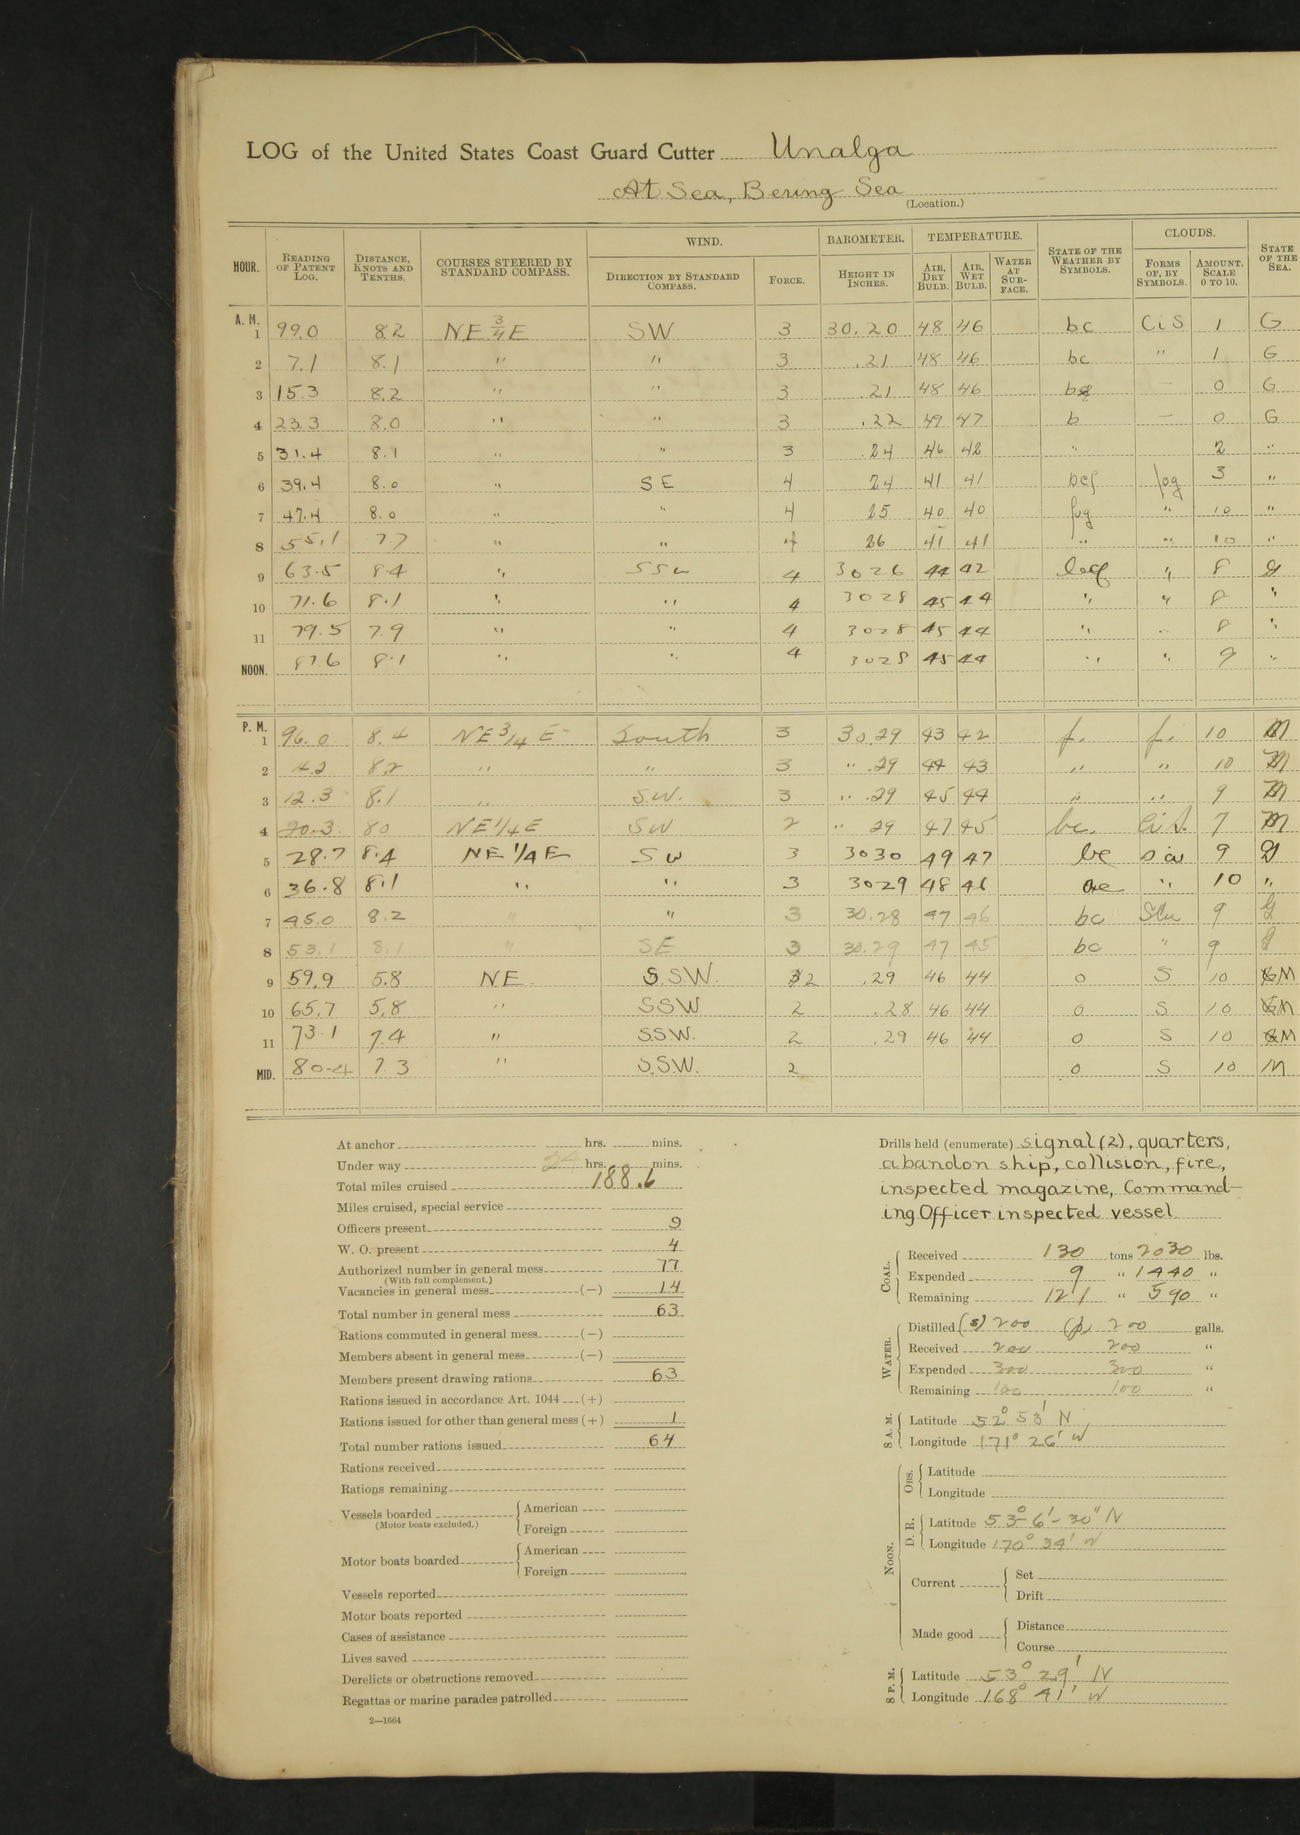 LOG of the United States Coast Guard Cutter Unalga
At Sea, Bering Sea
(Location.)
HOUR. READING OF PATENT LOG. DISTANCE, KNOTS AND TENTHS. COURSES STEERED BY STANDARD COMPASS. WIND. DIRECTION BY STANDARD COMPASS. FORCE. BAROMETER. HEIGHT IN INCHES. TEMPERATURE. AIR, DRY BULB. AIR, WET BULB. WATER AT SURFACE. STATE OF THE WEATHER BY SYMBOLS. CLOUDS. FORMS OF, BY SYMBOLS. AMOUNT. SCALE 0 TO 10. STATE OF THE SEA.
A. M.
1 99.0 8.2 NE 3/4 E SW 3 30.20 48 46 bc CiS 1 G
2 7.1 8.1 " " 3 .21 48 46 bc " 1 G
3 15.3 8.2 " " 3 .21 48 46 b — 0 G
4 23.3 8.0 " " 3 .22 49 47 b — 0 G
5 31.4 8.1 " " 3 .24 46 42 " 2 "
6 39.4 8.0 " SE 4 24 41 41 bcf fog 3 "
7 47.4 8.0 " " 4 25 40 40 fog " 10 "
8 55.1 7.7 " " 4 26 41 41 " " 10 "
9 63.5 8.4 " SSW 4 30 26 44 42 " 8 G
10 71.6 8.1 " " 4 30 28 45 44 " " 8 "
11 79.5 7.9 " " 4 30 28 45 44 " " 8 "
NOON. 87.6 8.1 " " 4 30 28 45 44 " " 9 "
P. M.
1 96.0 8.4 NE 3/4 E South 3 30.29 43 42 f. f. 10 M
2 4.2 8.2 " " 3 " .29 44 43 " " 10 M
3 12.3 8.1 " S.W. 3 " .29 45 44 " " 9 M
4 20.3 80 NE 1/4 E SW 2 " 29 47 45 bc. Ci S. 7 M
5 28.7 8.4 NE 1/4 E SW 3 30 30 49 47 bc 9 G
6 36.8 8.1 " " 3 30 29 48 46 " 10 "
7 45.0 8.2 " " 3 30.28 47 46 bc Scu 9 G
8 53.1 8.1 " SE 3 30.29 47 45 bc " 9 G
9 59.9 5.8 NE. S.SW. 2 .29 46 44 o S 10 M
10 65.7 5.8 " SSW 2 .28 46 44 o S 10 M
11 73.1 7.4 " S.S.W. 2 .29 46 44 o S 10 M
MID. 80.4 7.3 " S.S.W. 2 o S 10 M
At anchor hrs. mins.
Under way 24 hrs. mins.
Total miles cruised 188.6
Miles cruised, special service
Officers present 9
W. O. present 4
Authorized number in general mess 77
(With full complement.)
Vacancies in general mess (—) 14
Total number in general mess 63
Rations commuted in general mess (—)
Members absent in general mess (—)
Members present drawing rations 63
Rations issued in accordance Art. 1044 (+)
Rations issued for other than general mess (+) 1
Total number rations issued 64
Rations received
Rations remaining
Vessels boarded American
(Motor boats excluded.) Foreign
Motor boats boarded American
Foreign
Vessels reported
Motor boats reported
Cases of assistance
Lives saved
Derelicts or obstructions removed
Regattas or marine parades patrolled
2—1664
Drills held (enumerate) signal (2), quarters,
abandon ship, collision, fire,
inspected magazine, Command-
ing Officer inspected vessel
COAL.
Received 130 tons 2030 lbs.
Expended 9 " 1440 "
Remaining 121 " 590 "
WATER.
Distilled (s) 200 (p) 200 galls.
Received 200 200 "
Expended 300 300 "
Remaining 100 100 "
8 A. M.
Latitude 52° 53' N
Longitude 171° 26' W
NOON.
OBS.
Latitude
Longitude
D. R.
Latitude 53°-6'-30" N
Longitude 170° 34' W
Current Set
Drift
Made good Distance
Course
8 P. M.
Latitude 53° 29' N
Longitude 168° 41' W